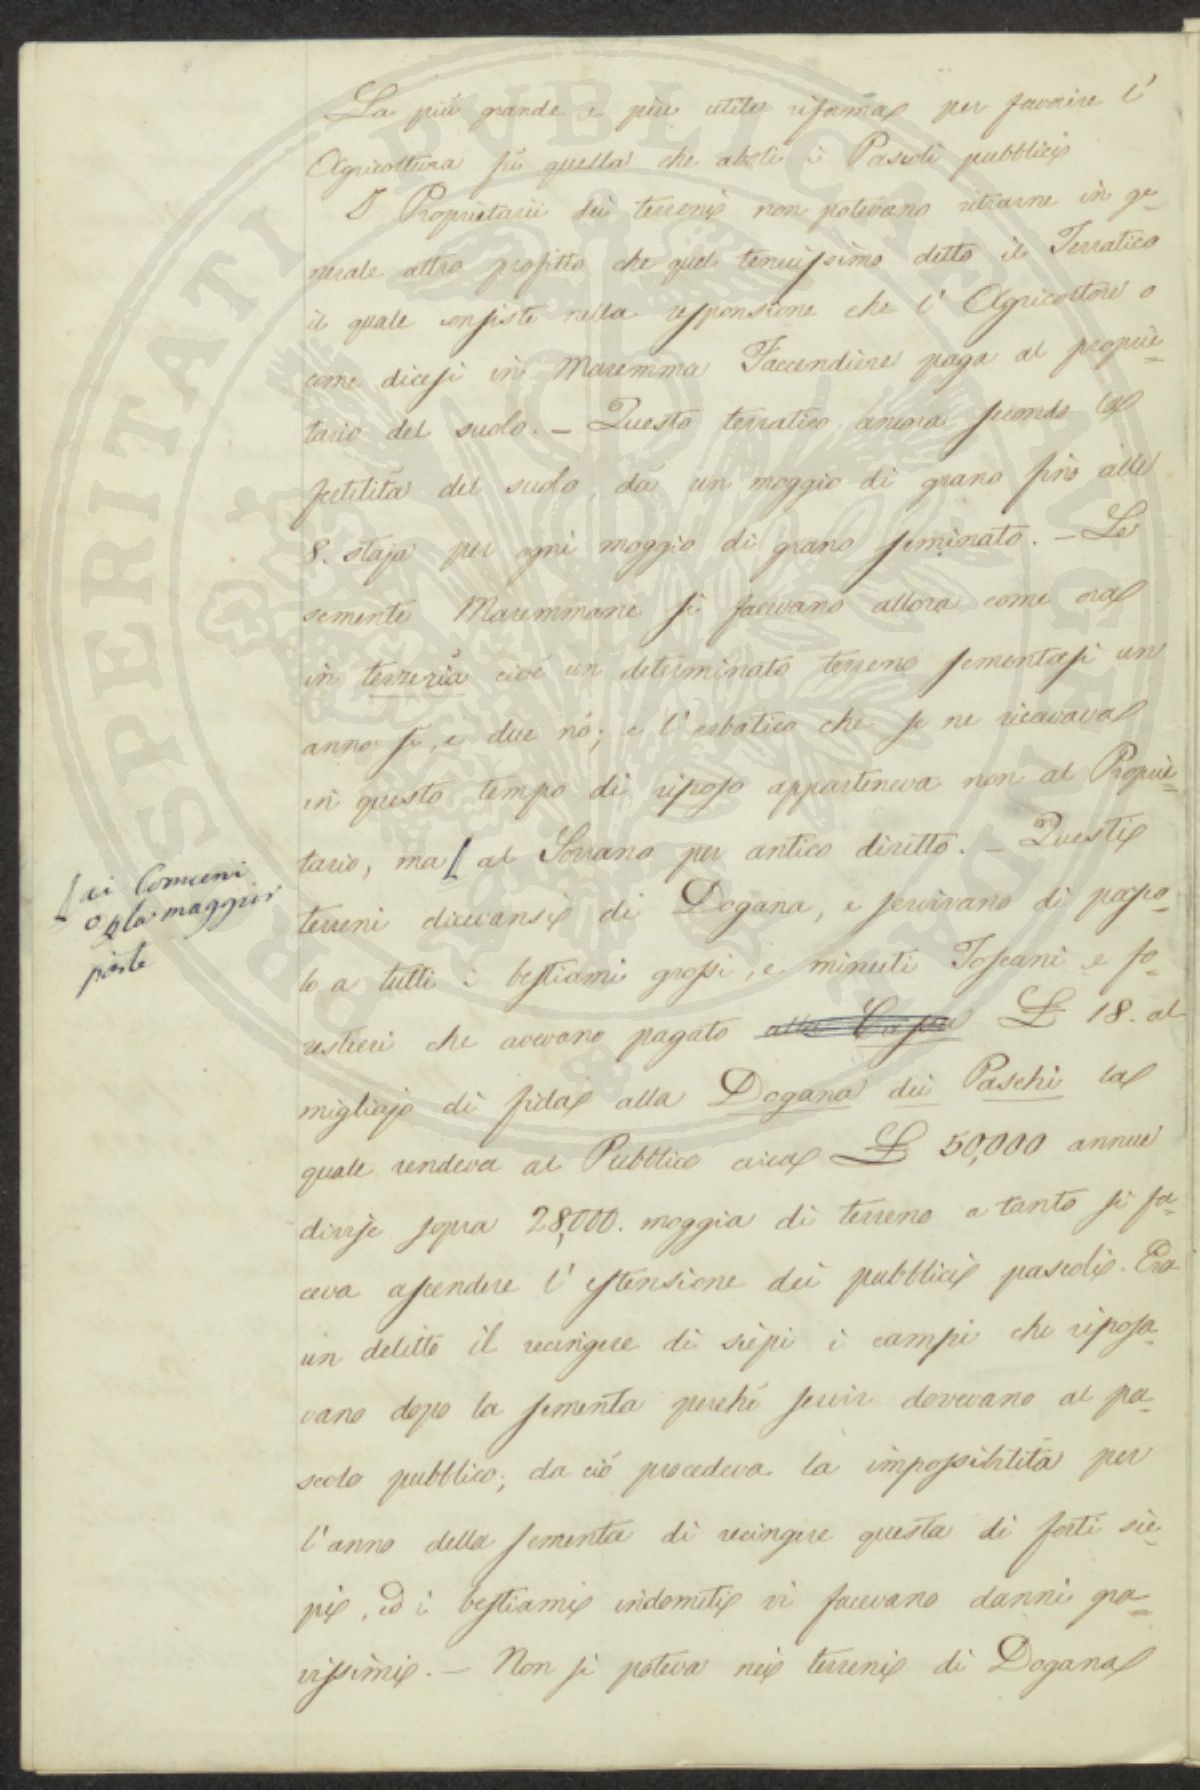 La più grande e più utile riforma per favorire l'
Agricoltura fù quella che abolì i Pascoli pubblici
I Proprietarii dei terreni non potevano ritrarne in ge-
nerale altro profitto che quel tenuissimo detto il Terratico
il quale consiste nella responsione che l'Agricoltore o
come dicesi in Maremma Faccendiere paga al proprie-
tario del suolo. – Questo terratico, ancora secondo la
fertilità del suolo, dà un moggio di grano fino alle
8. staja per ogni moggio di grano seminato. – Le
semente Maremmane si facevano allora come ora
in terzeria cioè un determinato terreno sementasi un
anno sì, e due nò; e l'erbatico che se ne ricavava
in questo tempo di riposo apparteneva non al Proprie-
tario, ma [ al Sovrano per antico diritto. – Questi
[ ai Comuni
o p la maggior
parte
terreni dicevansi di Dogana, e servivano di pasco-
lo a tutti i bestiami grossi, e minuti Toscani e fo-
restieri che avevano pagato alla £ 18. al
migliajo di fida alla Dogana dei Paschi la
quale rendeva al Pubblico circa £ 50,000 annue
divise sopra 28,000. moggia di terreno a tanto si fa-
ceva ascendere l'estensione dei pubblici pascoli. Era
un delitto il recingere di siepi i campi che riposa-
vano dopo la sementa perchè servir dovevano al pa-
scolo pubblico; da ciò procedeva la impossibilità per
l'anno della sementa di recingere questa di forti sie-
pi, ed i bestiami indomiti vi facevano danni gra-
vissimi. – Non si poteva nei terreni di Dogana
PROSPERITATI PUBLICAE AUGENDAE